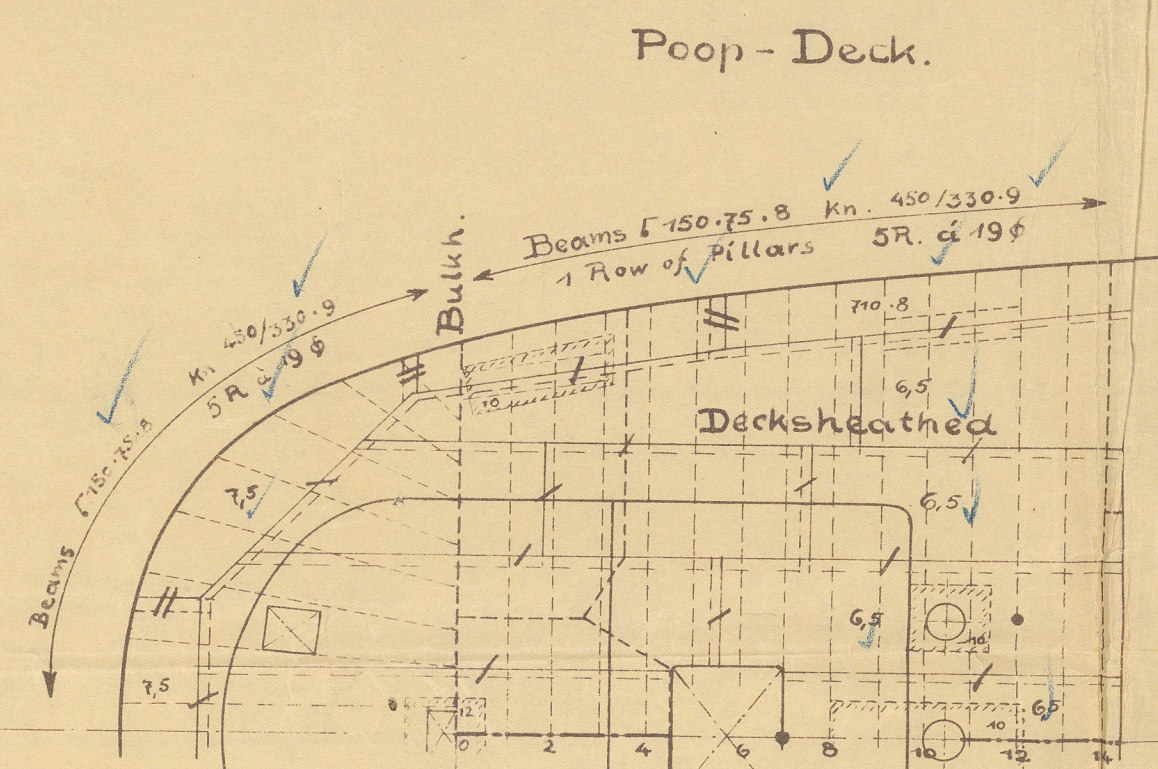 Poop - Deck.
Beams 150·75·8 Kn. 450/330·9
1 Row of Pillars 5R. á 19 ϕ
Bulkh.
Beams 150·75·8 Kn 450/330·9
5R á 19 ϕ
710·8
6,5
10
Decksheathed
7,5
6,5
6,5
10
7,5
12
6,5
10
0 2 4 6 8 10 12 14